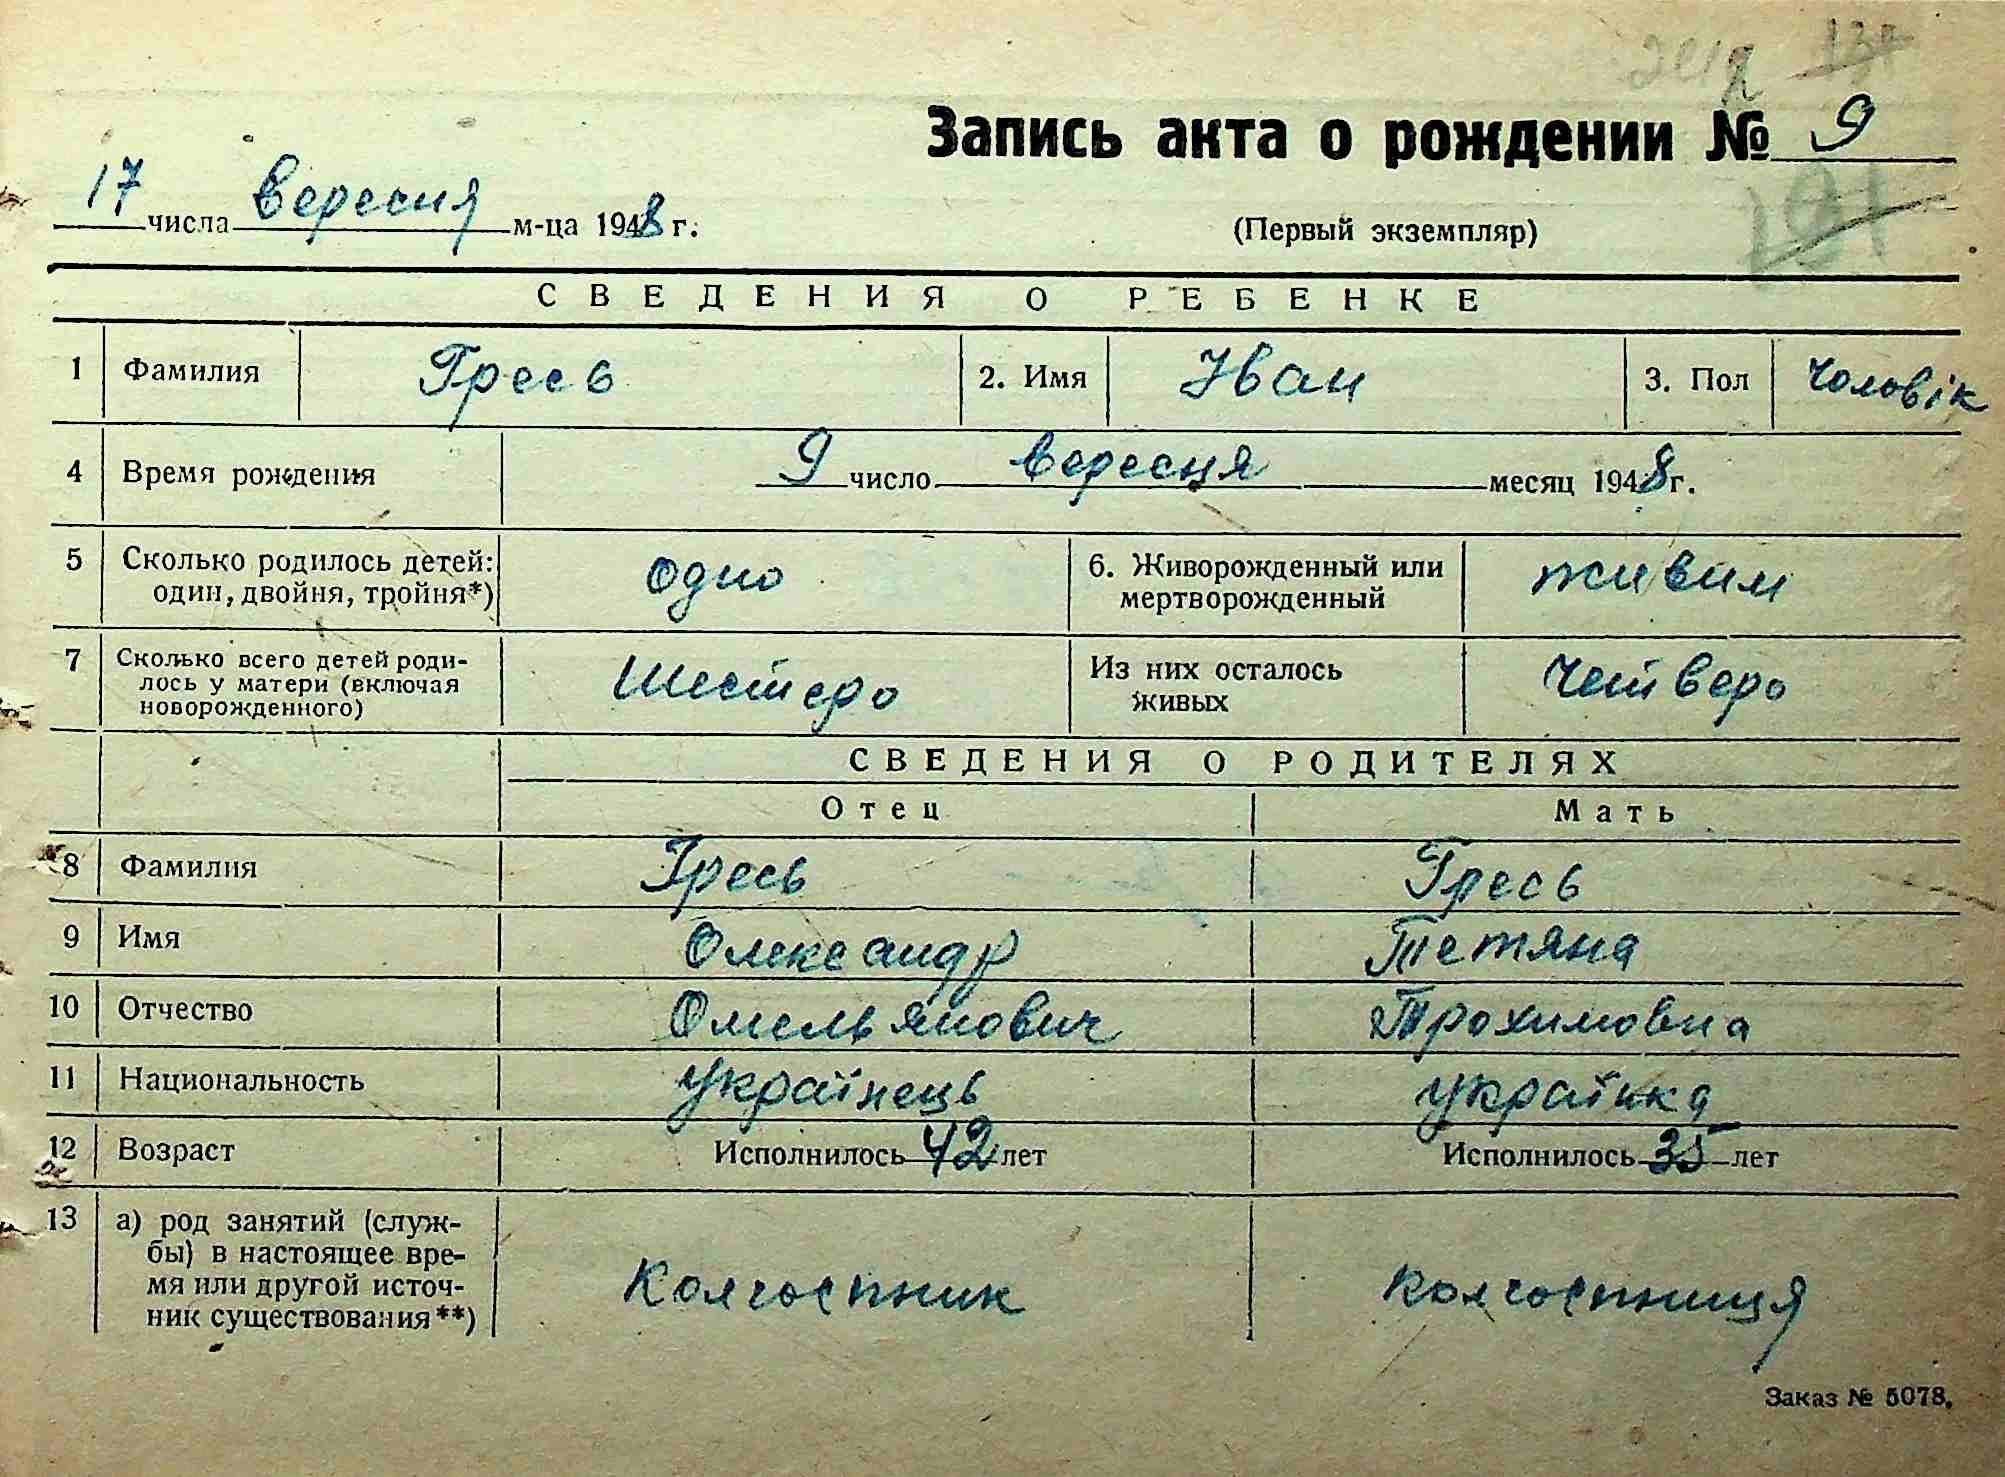 Запись акта о рождении № 9
17 числа вересня м-ца 1948 г.
(Первый экземпляр)
СВЕДЕНИЯ О РЕБЕНКЕ
1 Фамилия Гресь 2. Имя Іван 3. Пол чоловік
4 Время рождения 9 число вересня месяц 1948 г.
5 Сколько родилось детей: один, двойня, тройня*) одно 6. Живорожденный или мертворожденный живим
7 Сколько всего детей родилось у матери (включая новорожденного) Шестеро Из них осталось живых Четверо
СВЕДЕНИЯ О РОДИТЕЛЯХ
Отец Мать
8 Фамилия Гресь Гресь
9 Имя Олександр Тетяна
10 Отчество Омельянович Трохимовна
11 Национальность українець українка
12 Возраст Исполнилось 42 лет Исполнилось 35 лет
13 а) род занятий (служ-
бы) в настоящее вре-
мя или другой источ-
ник существования**)
Колгоспник Колгоспниця
Заказ № 5078.